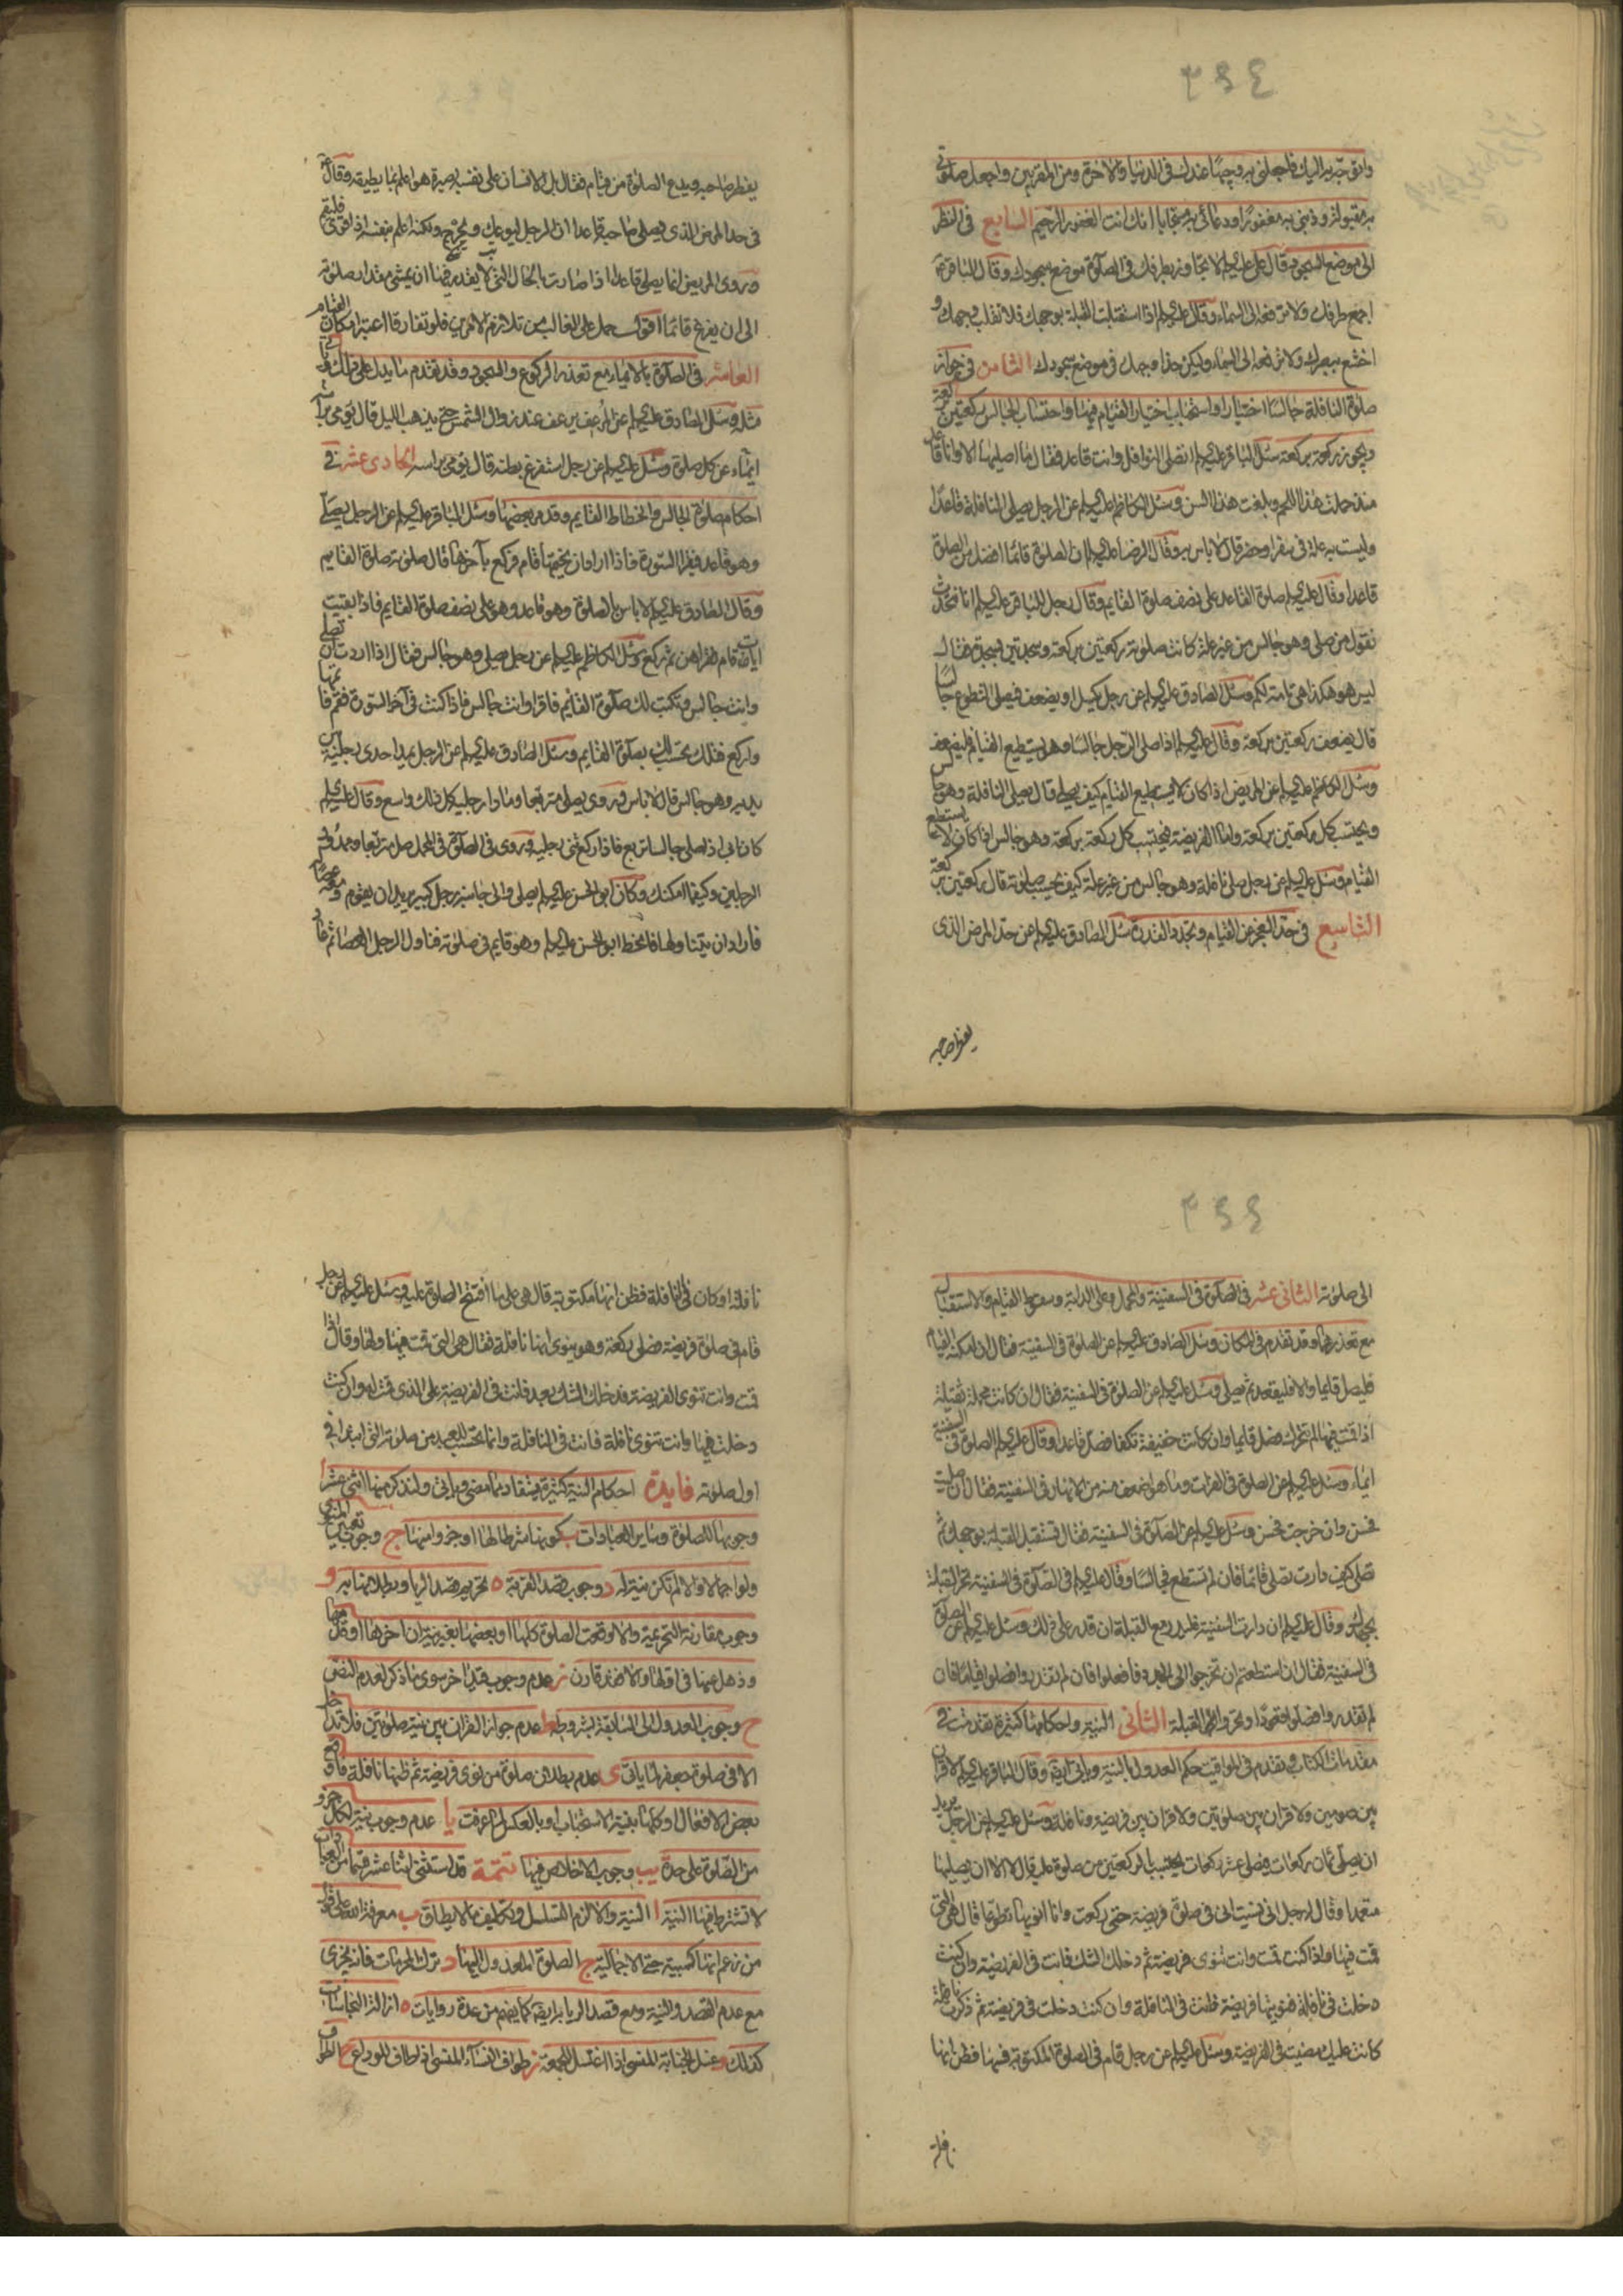 ٢٤٤
واتوجه به اليك فاجعلني به وجيها عندك في الدنيا والاخرة ومن المقربين واجعل صلوتي
به مقبولة وذنبي به مغفورا ودعائي به مستجابا انك انت الغفور الرحيم السابع في النظر
الى موضع السجود قال علي عليه السلام لا يتجاوز بطرفك في الصلوة موضع سجودك وقال الباقر
اجمع طرفك ولا ترفعه الى السماء وقال عليه السلام اذا استقبلت القبلة بوجهك فلا تقلب وجهك و
اخشع ببصرك ولا ترفعه الى السماء وليكن حذا وجهك في موضع سجودك الثامن في جواز
صلوة النافلة جالسا اختيارا واستحباب اختيار القيام فيها واحتساب الجالس ركعتين بركعة
ويجوز ركعة بركعة سئل الباقر عليه السلام اتصلي النوافل وانت قاعد فقال ما اصليها الا وانا قاعد
منذ حملت هذا اللحم وبلغت هذا السن وسئل الكاظم عليه السلام عن الرجل يصلي النافلة قاعدا
وليست به علة في سفر او حضر قال لا باس به وقال الرضا عليه السلام ان الصلوة قائما افضل من الصلوة
قاعدا وقال عليه السلام صلوة القاعد على نصف صلوة القايم وقال رجل للباقر عليه السلام انا نتحدث
نقول من صلى وهو جالس من غير علة كانت صلوته ركعتين بركعة وسجدتين بسجدة فقال
ليس هو هكذا هي تامة لكم وسئل الصادق عليه السلام عن رجل يكسل او يضعف فيصلي التطوع جالسا
قال يضعف ركعتين بركعة وقال عليه السلام اذا صلى الرجل جالسا وهو يستطيع القيام فليضعف
وسئل الكاظم عليه السلام عن المريض اذا كان لا يستطيع القيام كيف يصلي قال يصلي النافلة وهو جالس
ويحتسب كل ركعتين بركعة واما الفريضة فيحتسب كل ركعة بركعة وهو جالس اذا كان لا يستطيع
القيام وسئل عليه السلام عن رجل صلى نافلة وهو جالس من غير علة كيف يحتسب صلوته قال ركعتين بركعة
التاسع في حد العجز عن القيام وتجدد القدرة سئل الصادق عليه السلام عن حد المرض الذي
يفطر صاحبه
يفطر صاحبه ويدع الصلوة من قيام فقال بل الانسان على نفسه بصيرة هو اعلم بما يطيقه وقال
في حد المرض الذي يصلي صاحبه قاعدا ان الرجل ليوعك ويحرج ولكنه اعلم بنفسه اذا قوي فليقم
وروي المريض انما يصلي قاعدا اذا صارت بالحال التي لا يقدر فيها ان يمشي مقدار صلوته
الى ان يفرغ قائما اقول حمل على الغالب من تلازم الامرين فلو تفارقا اعتبر امكان القيام
العاشر في الصلوة بالايماء مع تعذر الركوع والسجود وقد تقدم ما يدل على ذلك
مثله وسئل الصادق عليه السلام عن المرعف يرعف عند زوال الشمس حتى يذهب الليل قال يومي براسه
ايماء عن كل صلوة وسئل عليه السلام عن رجل استفرغ بطنه قال يومي براسه الحادي عشر في
احكام صلوة الجالس وانحطاط القايم وقد مر بعضها وسئل الباقر عليه السلام عن الرجل يصلي
وهو قاعد فيقرا السورة فاذا اراد ان يختمها قام فركع بآخرها قال صلوته صلوة القايم
وقال الصادق عليه السلام لا باس بالصلوة وهو قاعد وهو على نصف صلوة القايم فاذا بقيت
ايات قام فقراهن ثم ركع وسئل الكاظم عليه السلام عن رجل يصلي وهو جالس فقال اذا اردت ان تصلي
وانت جالس وتكتب لك صلوة القايم فاقرا وانت جالس فاذا كنت في آخر السورة فقم فاتمها
واركع فتلك تحتسب لك بصلوة القايم وسئل الصادق عليه السلام عن الرجل يمد احدى رجليه بين
يديه وهو جالس قال لا باس وروي يصلي متربعا ومادا رجليه كل ذلك واسع وقال عليه السلام
كان ابي اذا صلى جالسا تربع فاذا ركع ثنى رجليه وروي في الصلوة في المحمل صل متربعا وممدود
الرجلين وكيفما امكنك وكان ابو الحسن عليه السلام يصلي والى جانبه رجل كبير يريد ان يقوم ومعه عصا
فاراد ان يتناولها فانحط ابو الحسن عليه السلام وهو قايم في صلوته فناول الرجل العصا ثم عاد
٢٤٤
الى صلوته الثاني عشر في الصلوة في السفينة والمحمل وعلى الدابة وسقوط القيام والاستقبال
مع تعذرهما وقد تقدم في المكان وسئل الصادق عليه السلام عن الصلوة في السفينة فقال ان امكنه القيام
فليصل قايما والا فليقعد ثم يصلي وسئل عليه السلام عن الصلوة في السفينة فقال ان كانت محملة ثقيلة
اذا قمت فيها لم تتحرك فصل قايما وان كانت خفيفة تكفا فصل قاعدا وقال عليه السلام الصلوة في السفينة
ايماء وسئل عليه السلام عن الصلوة في الفرات وما هو اضعف منه من الانهار في السفينة فقال ان صليت
فحسن وان خرجت فحسن وسئل عليه السلام عن الصلوة في السفينة فقال تستقبل القبلة بوجهك ثم
تصلي كيف دارت تصلي قائما فان لم تستطع فجالسا وقال عليه السلام في الصلوة في السفينة تحر القبلة
بجهدك وقال عليه السلام ان دارت السفينة فليدر مع القبلة ان قدر على ذلك وسئل عليه السلام عن الصلوة
في السفينة فقال ان استطعتم ان تخرجوا الى الجدد فافعلوا فان لم تقدروا فصلوا قياما فان
لم تقدروا فصلوا قعودا وتحروا القبلة الثاني النية واحكامها كثيرة تقدمت في
مقدمات الكتاب وتقدم في المواقيت حكم العدول بالنية وياتي ايضا وقال الباقر عليه السلام لا قران
بين صومين ولا قران بين صلوتين ولا قران بين فريضة ونافلة وسئل عليه السلام عن الرجل يريد
ان يصلي ثمان ركعات فيصلي عشر ركعات يحتسب بالركعتين من صلوة عليه قال لا الا ان يصليها
متعمدا وقال له رجل اني نسيت اني في صلوة فريضة حتى ركعت وانا انويها تطوعا قال هي التي
قمت فيها اذا كنت قمت وانت تنوي فريضة ثم دخلك الشك فانت في الفريضة وان كنت
دخلت في نافلة فنويتها فريضة فانت في النافلة وان كنت دخلت في فريضة ثم ذكرت نافلة
كانت عليك مضيت في الفريضة وسئل عليه السلام عن رجل قام في الصلوة المكتوبة فسها فظن انها
نافلة
نافلة او كان في النافلة فظن انها مكتوبة قال هي على ما افتتح الصلوة عليه وسئل عليه السلام عن رجل
قام في صلوة فريضة فصلى ركعة وهو ينوي انها نافلة فقال هي التي قمت فيها ولها وقال اذا
قمت وانت تنوي الفريضة فدخلك الشك بعد فانت في الفريضة على الذي قمت له وان كنت
دخلت فيها وانت تنوي نافلة فانت في النافلة وانما تحتسب للعبد من صلوته التي ابتدا في
اول صلوته فايدة احكام النية كثيرة يستفاد مما مضى وياتي ولنذكر منها اثنى عشر ا
وجوبها للصلوة وساير العبادات ب كونها شرطا لها او جزوا منها ج وجوب تعيين المنوي
ولو اجمالا والا لم تكن نية له د وجوب قصد القربة ه تحريم قصد الريا وبطلانها به و
وجوب مقارنة التحريمة والا وقعت الصلوة كلها او بعضها بغير نية ان اخرها او قدمها
وذهل عنها في اولها والا فقد قارن ز عدم وجوب قيد اخر سوى ما ذكر لعدم النص
ح وجوب العدول الى السابقة بشروطه ط عدم جواز القران بين نية صلوتين فلا تداخل
الا في صلوة جعفر لما ياتي ى عدم بطلان صلوة من نوى فريضة ثم ظنها نافلة فاوقع
بعض الافعال او كلها بنية الاستحباب وبالعكس لما عرفت يا عدم وجوب نية لكل جزو
من الصلوة على حدة يب وجوب الاخلاص فيها تتمة قد استثنى اثنا عشر قسما من العبادات
لا تشترط فيها النية ا النية والا لزم التسلسل وتكليف ما لا يطاق ب معرفة الله على قول
من زعم انها كسبية حتى الاجمالية ج الصلوة المعدول اليها د ترك المحرمات فانه يجزي
مع عدم القصد والنية ومع قصد الريا برايه كما يفهم من عدة روايات ه ازالة النجاسات
كذلك و غسل الجنابة المنسي اذا اغتسل للجمعة ز طواف النساء المنسي اذا طاف للوداع ح الطواف